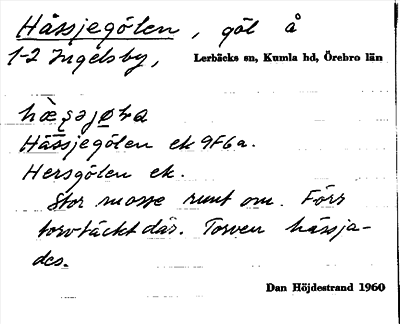 Hässjegölen, göl å
1-2 Ingelsby, Lerbäcks sn, Kumla hd, Örebro län
Hässjegölen ek 9F6a.
Hersgölen ek.
Stor mosse runt om. Förr
torvtäckt där. Torven hässja-
des.
Dan Höjdestrand 1960